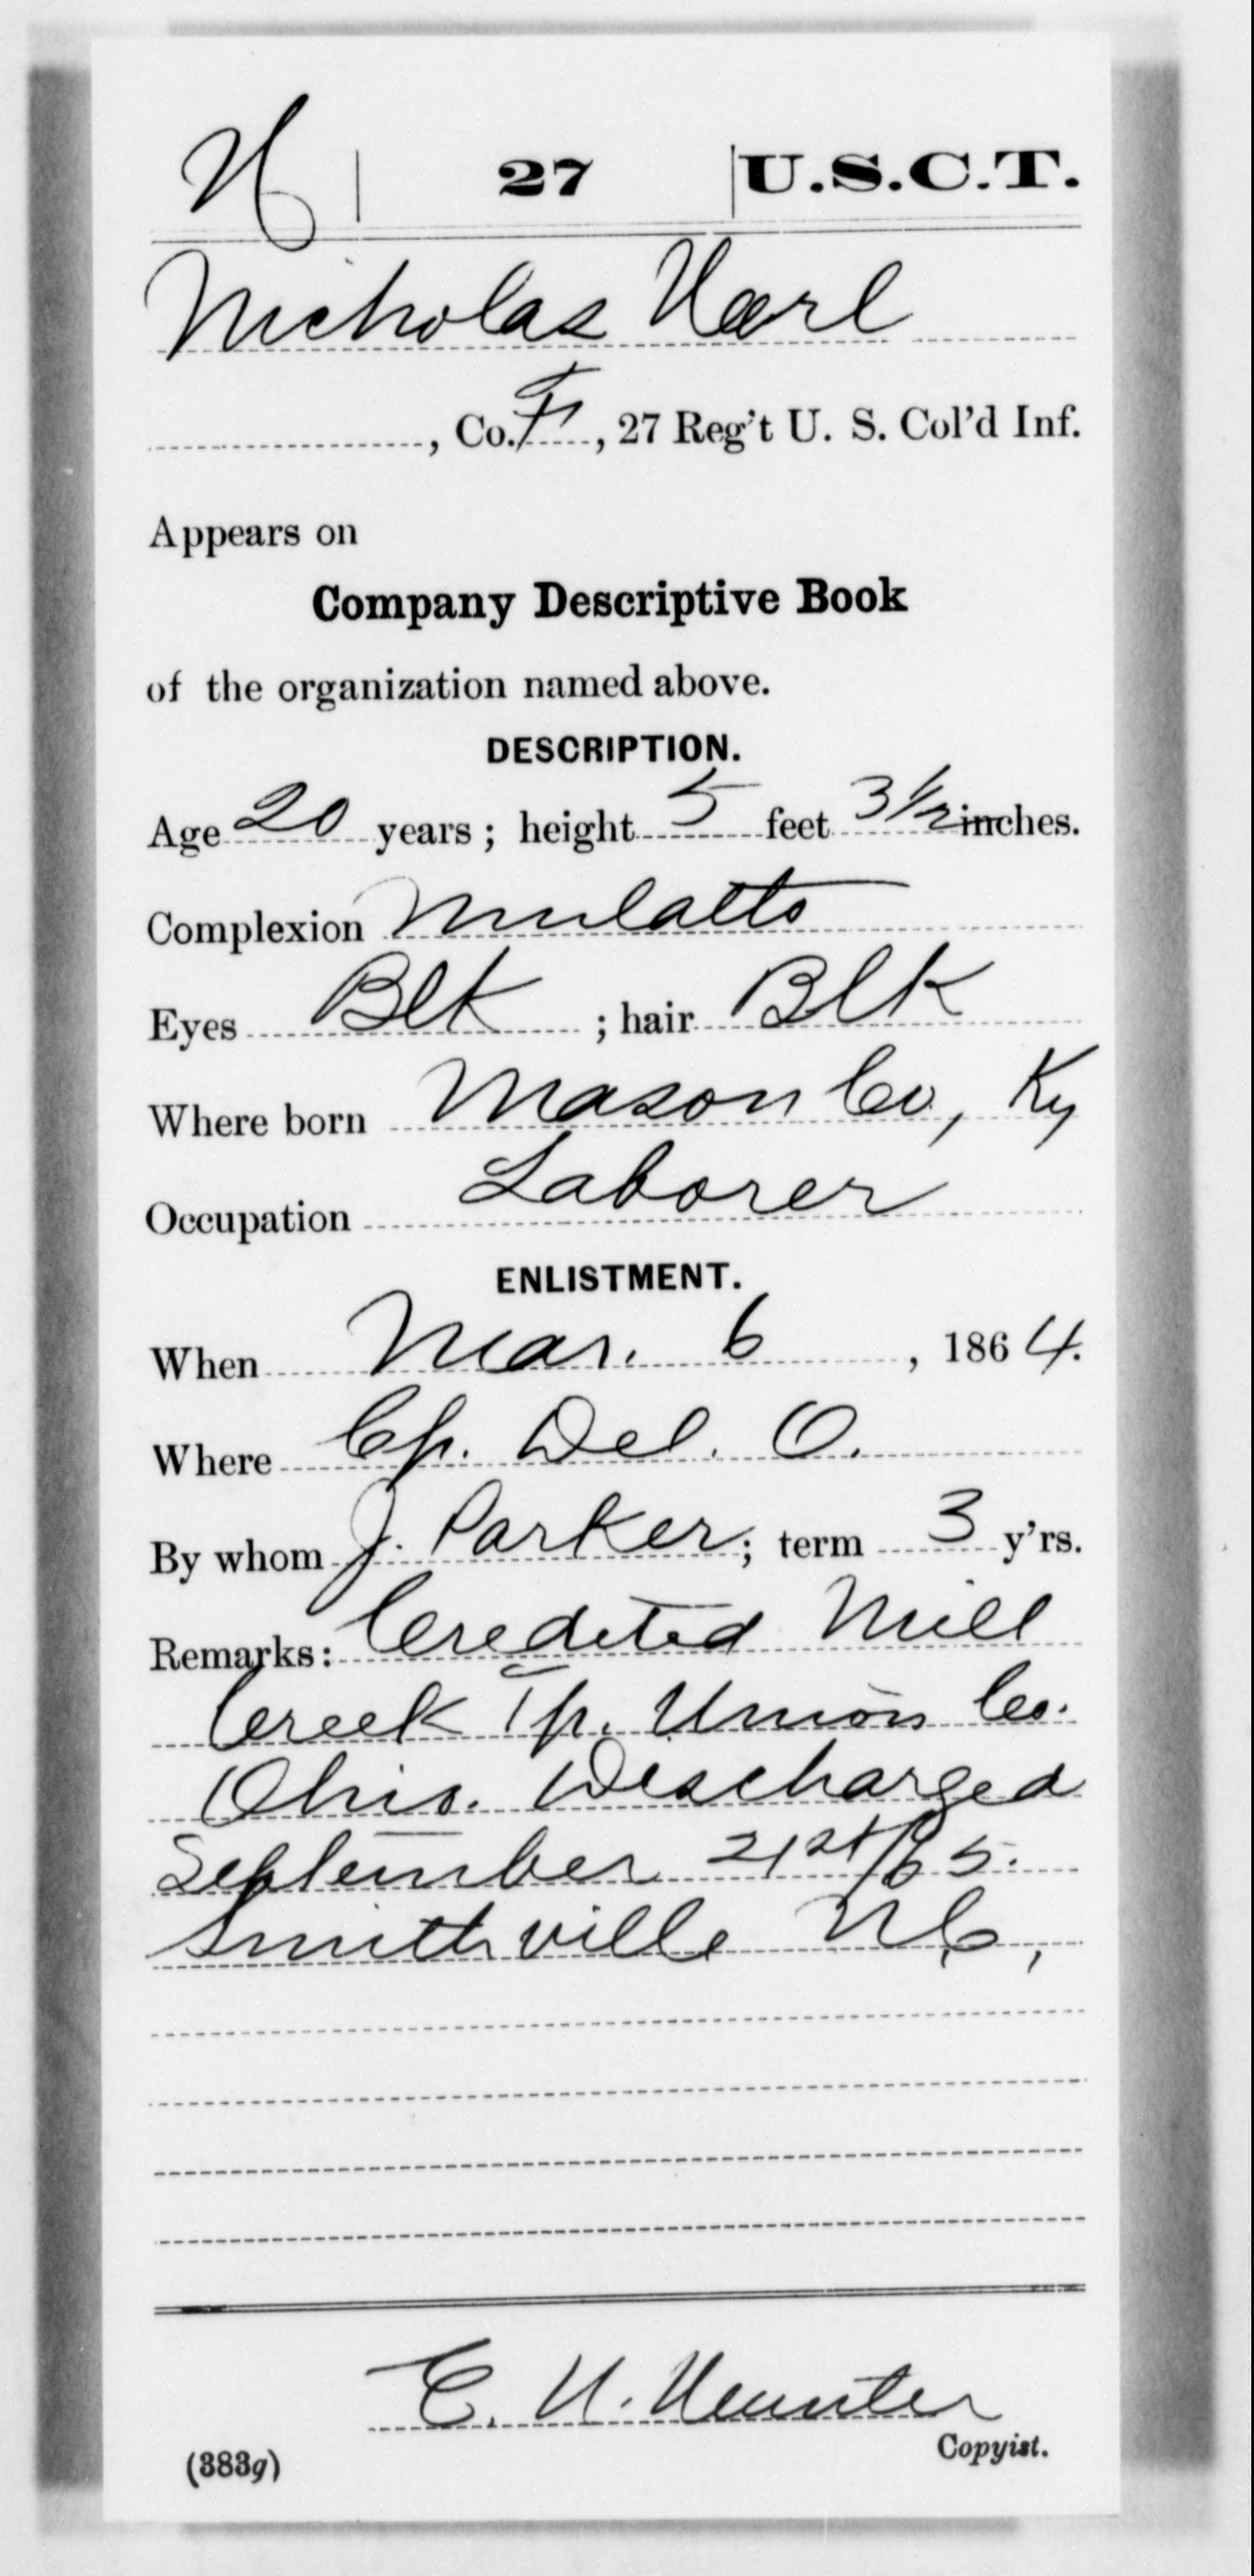 H 27 U.S.C.T.
Nicholas Harl
, Co. F, 27 Reg't U. S. Col'd Inf.
Appears on
Company Descriptive Book
of the organization named above.
DESCRIPTION.
Age 20 years; height 5 feet 3 1/2 inches.
Complexion Mulatto
Eyes Blk ; hair Blk
Where born Mason Co, Ky
Occupation Laborer
ENLISTMENT.
When Mar. 6, 1864.
Where Cp. Del. O.
By whom J. Parker; term 3 y'rs.
Remarks: Credited Mill
Creek Tp. Union Co.
Ohio. Discharged
September 21st/65.
Smithville N.C,
Copyist.
(383g)